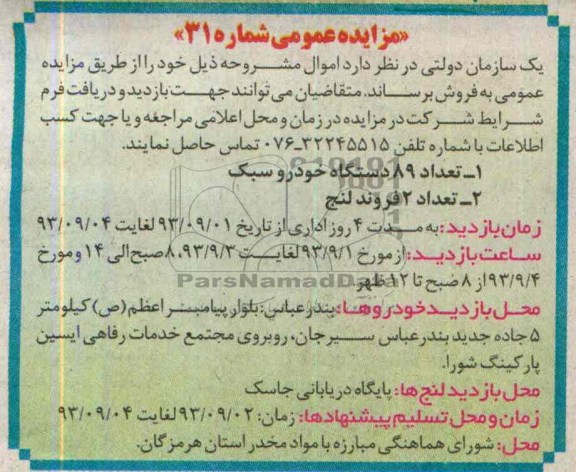 «مزایده عمومی شماره ۳۱»
یک سازمان دولتی در نظر دارد اموال مشروحه ذیل خود را از طریق مزایده
عمومی به فروش برساند. متقاضیان می توانند جهت بازدید و دریافت فرم
شرایط شرکت در مزایده در زمان و محل اعلامی مراجعه و یا جهت کسب
اطلاعات با شماره تلفن ۳۲۲۴۵۵۱۵-۰۷۶ تماس حاصل نمایند.
۱ـ تعداد ۸۹ دستگاه خودرو سبک
۲ـ تعداد ۲ فروند لنج
زمان بازدید: به مدت ۴ روز اداری از تاریخ ۹۳/۰۹/۰۱ لغایت ۹۳/۰۹/۰۴
ساعت بازدید: از مورخ ۹۳/۹/۱ لغایت ۹۳/۹/۳، ۸ صبح الی ۱۴ و مورخ
۹۳/۹/۴ از ۸ صبح تا ۱۲ ظهر
محل بازدید خودروها: بندرعباس: بلوار پیامبر اعظم (ص) کیلومتر
۵ جاده جدید بندرعباس سیرجان، روبروی مجتمع خدمات رفاهی ایسین
پارکینگ شورا.
محل بازدید لنج ها: پایگاه دریابانی جاسک
زمان و محل تسلیم پیشنهادها: زمان: ۹۳/۰۹/۰۲ لغایت ۹۳/۰۹/۰۴
محل: شورای هماهنگی مبارزه با مواد مخدر استان هرمزگان.
ParsNamadData